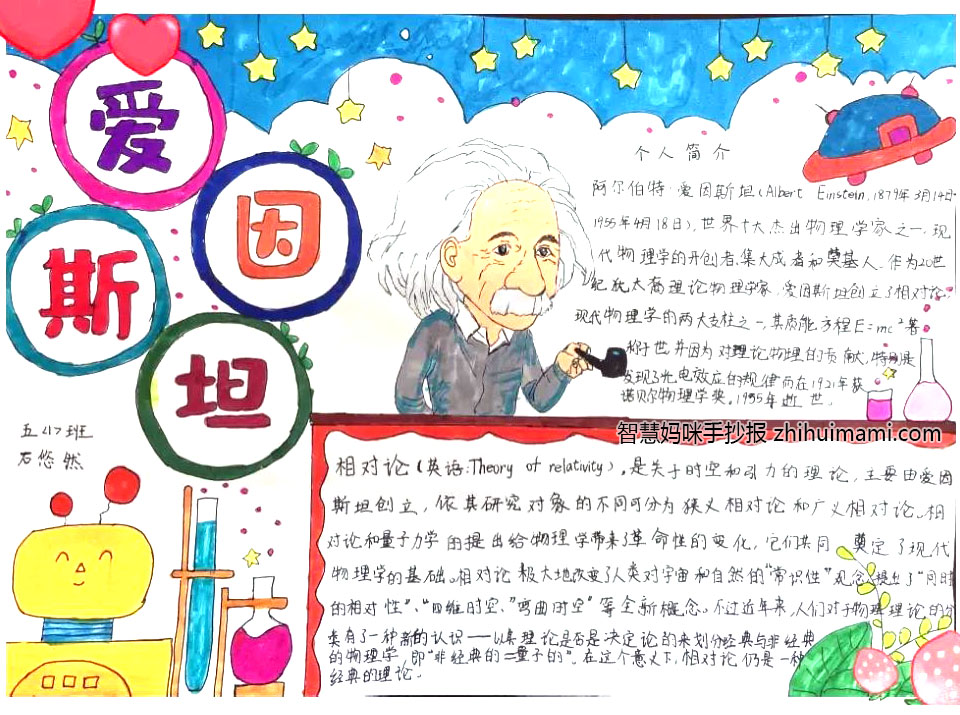 爱
因
斯
坦
个人简介
阿尔伯特·爱因斯坦(Albert Einstein,1879年3月14日-
1955年4月18日),世界十大杰出物理学家之一,现
代物理学的开创者、集大成者和奠基人。作为20世
纪犹太裔理论物理学家,爱因斯坦创立了相对论,
现代物理学的两大支柱之一,其质能方程E=mc²著
称于世,并因为对理论物理的贡献,特别是
发现了光电效应的规律而在1921年获
诺贝尔物理学奖。1955年逝世。
智慧妈咪手抄报 zhihuimami.com
五<1>班
石悠然
相对论(英语:Theory of relativity),是关于时空和引力的理论,主要由爱因
斯坦创立,依其研究对象的不同可分为狭义相对论和广义相对论。相
对论和量子力学的提出给物理学带来了革命性的变化,它们共同奠定了现代
物理学的基础。相对论极大地改变了人类对宇宙和自然的“常识性”观念,提出了“同时
的相对性”、“四维时空、”弯曲时空”等全新概念。不过近年来,人们对于物理理论的分
类有了一种新的认识——以其理论是否是决定论的来划分经典与非经典
的物理学,即“非经典的=量子的”。在这个意义下,相对论仍是一种
经典的理论。